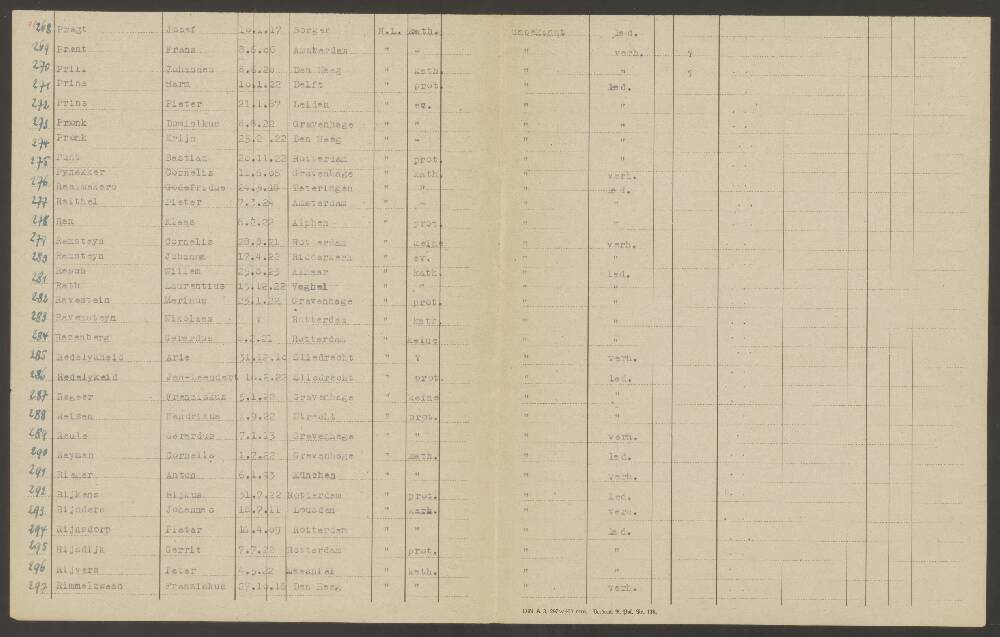 268 Pragt Josef 16.1.17 Borger N.L. kath. unbekannt led.
269 Prent Frans 8.6.06 Amsterdam " - " verh. ?
270 Prill Johannes 8.6.20 Den Haag " kath. " " ?
271 Prins Harm 10.1.22 Delft " prot. " led.
272 Prins Pieter 21.1.87 Leiden " ev. " "
273 Pronk Dominikus 8.8.22 Gravenhage " " " "
274 Pronk Krijn 25.2.22 Den Haag " - " "
275 Bastian 20.11.22 Rotterdam " prot. " "
276 Pynakker Cornelis Gravenhage " kath. " verh.
Godefridus Teteringen " " " led.
277 Raithel Pieter 7.3.24 Amsterdam " - " "
278 Ram Klaas 8.2.22 Alphen " prot. " "
279 Ramsteyn Cornelis 28.8.21 Rotterdam " keine " verh.
280 Ramsteyn Johannes 17.4.22 Ridderkerk " ev. " "
281 Rasch Willem 29.8.23 Alkmaar " kath. " led.
Rath Laurentius 15.12.22 Veghel " " " "
282 Ravestein Marinus 23.1.22 Gravenhage " prot. " "
283 Ravensteyn Nikolaas ? Rotterdam " kath. " "
284 Razenberg Gerardus Rotterdam " keine " "
285 Redelykheid Arie 31.12.10 Sliedrecht " ? " verh.
286 Redelykeid Jan-Leendert 10.2.22 Sliedrecht " prot. " led.
287 Regeer Franziskus 5.1.22 Gravenhage " keine " "
288 Reisen Hendrikus 1.9.22 Utrecht " prot. " "
289 Reule Gerardus 7.1.13 Gravenhage " " " verh.
290 Reyman Cornelis 1.7.22 Gravenhage " kath. " led.
291 Rieger Anton 6.1.93 München " " " verh.
292 Rijkens Rijkus 31.7.22 Rotterdam " prot. " led.
293 Rijnders Johannes 18.9.11 Leusden " kath. " verh.
294 Rijnsdorp Pieter 12.4.09 Rotterdam " " " led.
295 Rijsdijk Gerrit 7.7.22 Rotterdam " prot. " "
296 Rijvers Peter 4.5.22 " kath. " "
297 Rimmelzwaan Franziskus 27.10.18 Den Haag " " " verh.